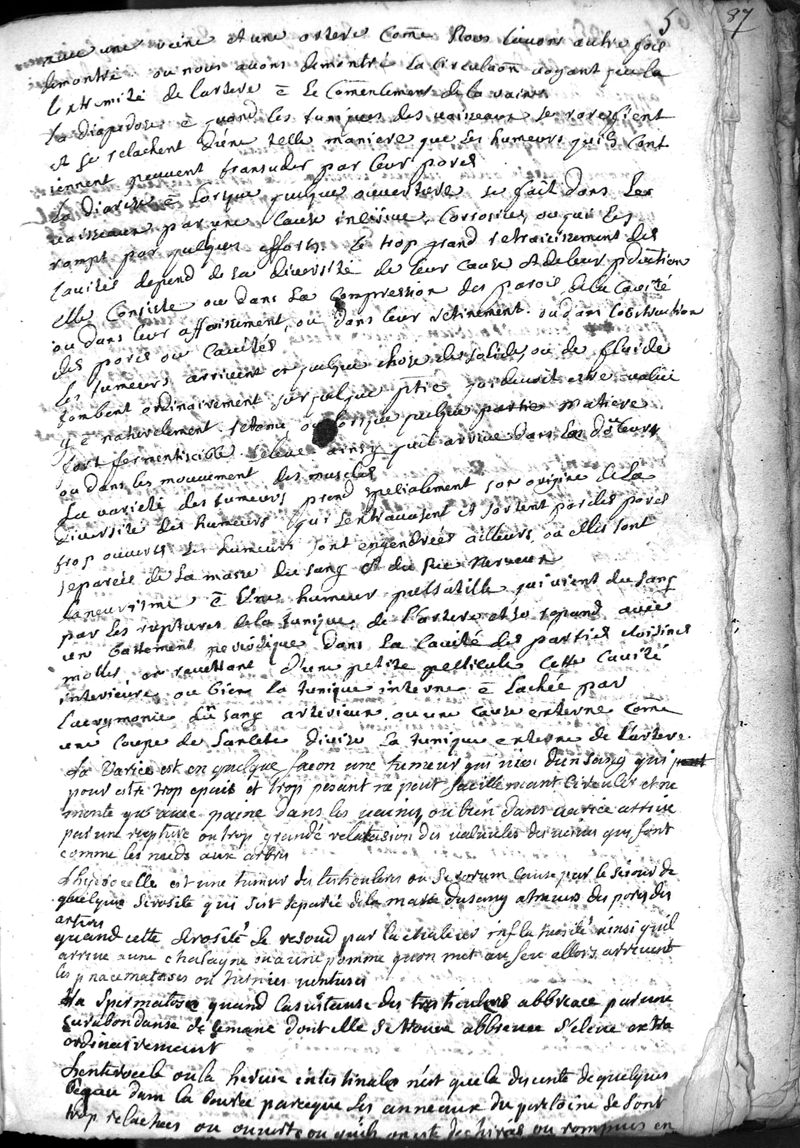 5 87
avec une veine et une artere Come Nous l'avons autre fois
demontré ou nous avons demontré la circulaõn voyant que la
lextremité de l'artere ē le Comencement de la vaine
La diapedose ē quand les tuniques des vaisseaux se rarefient
et se relachent d'une telle maniere que les humeurs quils Cont
iennent peuvent transuder par leur pores
La diærese ē lorsque quelque ouverture se fait dans les
vaisseaux par une Cause incisive, Corrosive, ou qui les
rompt par quelques efforts. Le trop grand retraicissement des
Cavités depend de la diversité de leur Cause et de leur pdūction
elle Consiste ou dans La Compression des parois de la Cavité
ou dans leur affaissement, ou dans leur retinement. ou dans l'obstruction
des pores ou Cavités
les tumeurs arrivent en quelque chose de solide, ou de fluide
tombent ordinairement sur quelque ptie qui devoit estre
y ē naturelement. ou lorsque quelque partie matiere
fort fermentiscible s'eleve ainsy quil arrive dans les
ou dans les mouvement des muscles
La varieté des tumeurs prend specialement son origine de la
diversité des humeurs qui s'extravasent et sortent par des pores
trop ouverts les humeurs sont engendrées ailleurs, ou elles sont
separées de La masse du sang et du suc Nerveux
L'aneurisme ē Une humeur pulsatille qui vient du sang
par les ruptures de la tunique de l'artere et se repand avec
un battement periodique dans La Cavité des parties voisines
molles, en revettant d'une petite pellicule Cette Cavité
interieure ou bien la tunique interne ē Lachée par
L'acrymonie du sang arterieux, ou une Cause externe Come
un Coupe de Lancete divise La tunique externe de L'artere.
La varice est en quelque facon une tumeur qui vien dun sang qui peut
pour estre trop epais et trop pesant ne peut facillement Circuler et ne
monte qu'avec paine dans les vaines, ou bien dans varice arrive
par une rupture ou trop grande relaxsion des valvules des veines qui sont
comme les nœds aux arbres
L'hydrocelle est une tumeur des testicules ou Scrotum Cause par le sejour de
quelque Serosité qui s'est separée de la masse du sang a travers des pores des
arteres
quand cette Serosité Se resoud par la chaleur ainsi qu'il
arrive a une chataigne ou a une pomme qu'on met au feu allors arrivent
les pneumatoses ou hernies venteuses
La Spermatose quand La substance des testicules abbreuée par une
surabondanse de semance dont elle se trouve abbreuée s'eleve extra
ordinairement
L'enterocele ou la hernie intestinale n'est que la descente de quelques
boyau dans la bourse parceque Les anneaux du peritoine se sont
trop relachées ou ouverts ou quils ont este dechirés ou rompus en